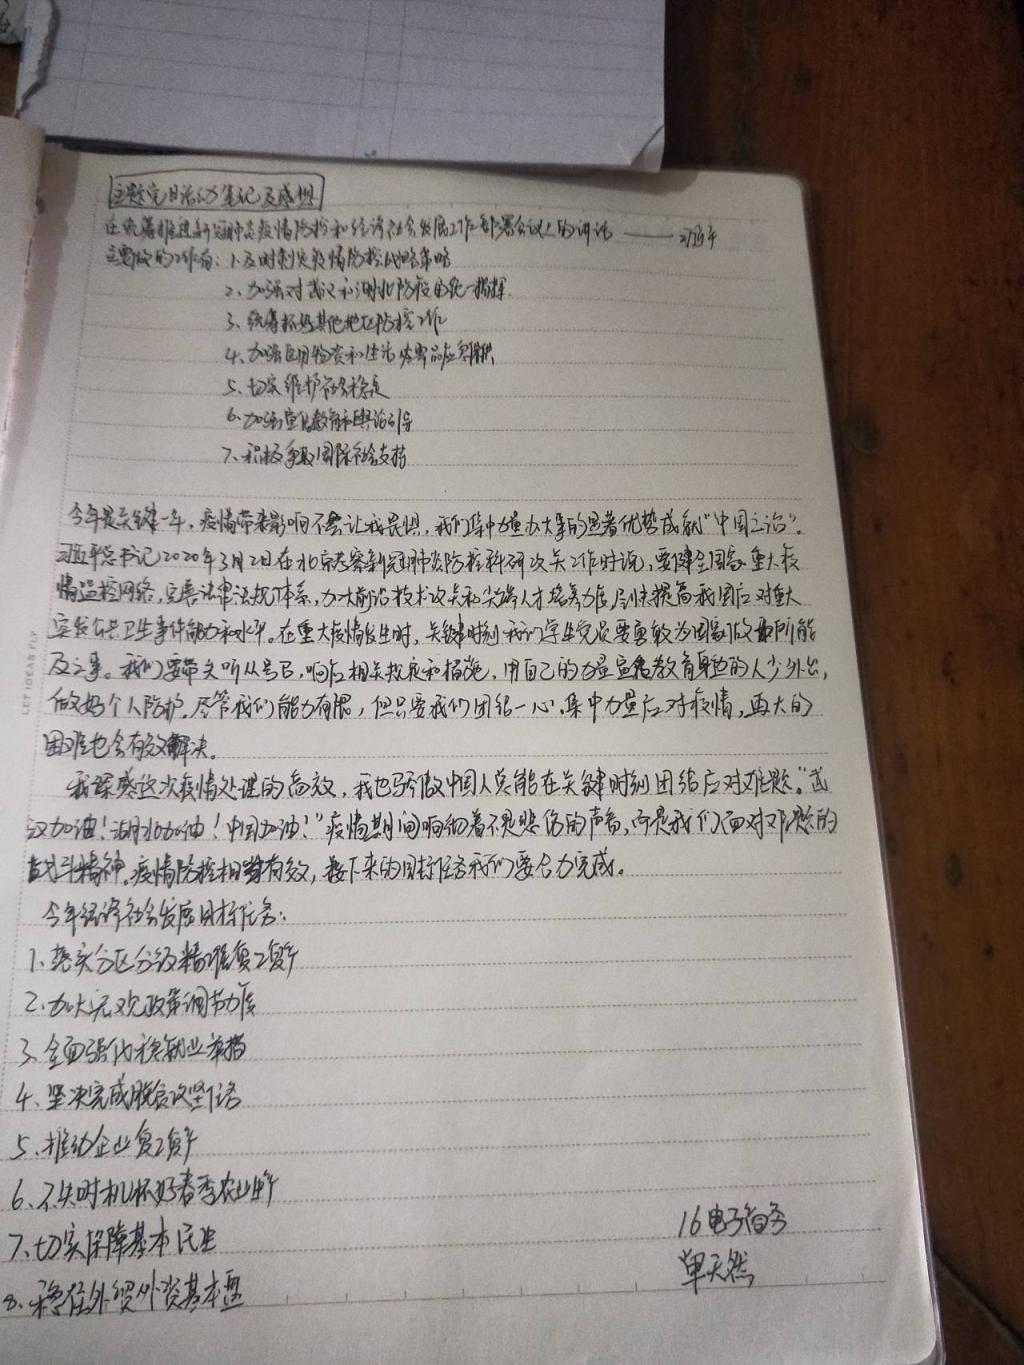 主题党日活动笔记及感想
在统筹推进新冠肺炎疫情防控和经济社会发展工作部署会议上的讲话 —— 习近平
主要做的工作有：1、及时制定疫情防控战略策略
2、加强对武汉和湖北防疫的统一指挥.
3、统筹抓好其他地区防控工作
4、加强医用物资和生活必需品应急保供
5、切实维护社会稳定
6、加强宣传教育和舆论引导
7、积极争取国际社会支持
今年是关键一年，疫情带来影响不会让我畏惧，我们集中力量办大事的显著优势成就"中国之治"。
习近平总书记2020年3月2日在北京考察新冠肺炎防控科研攻关工作时说，要健全国家重大疫
情监控网络，完善法律法规体系，加大前沿技术攻关和尖端人才培养力度，以来提高我国应对重大
突发公共卫生事件能力和水平。在重大疫情发生时，关键时刻我们学生党员要勇敢为国家做力所能
及之事。我们要带头听从号召，响应相关规定和措施，用自己的力量宣传教育身边的人少外出，
做好个人防护。尽管我们能力有限，但只要我们团结一心，集中力量应对疫情，再大的
困难也会有效解决。
我深感这次疫情处理的高效，我也骄傲中国人总能在关键时刻团结应对难题。"武
汉加油！湖北加油！中国加油！"疫情期间响彻着不是悲伤的声音，而是我们面对难题的
战斗精神。疫情防控相当有效，接下来的目标任务我们要合力完成。
今年经济社会发展目标任务：
1、落实分区分级精准复工复产
2、加大宏观政策调节力度
3、全面强化稳就业举措
4、坚决完成脱贫攻坚任务
5、推动企业复工复产
6、不失时机抓好春季农业生产
7、切实保障基本民生
8、稳住外贸外资基本盘
16电子商务
单天然
LET IDEAS FLY